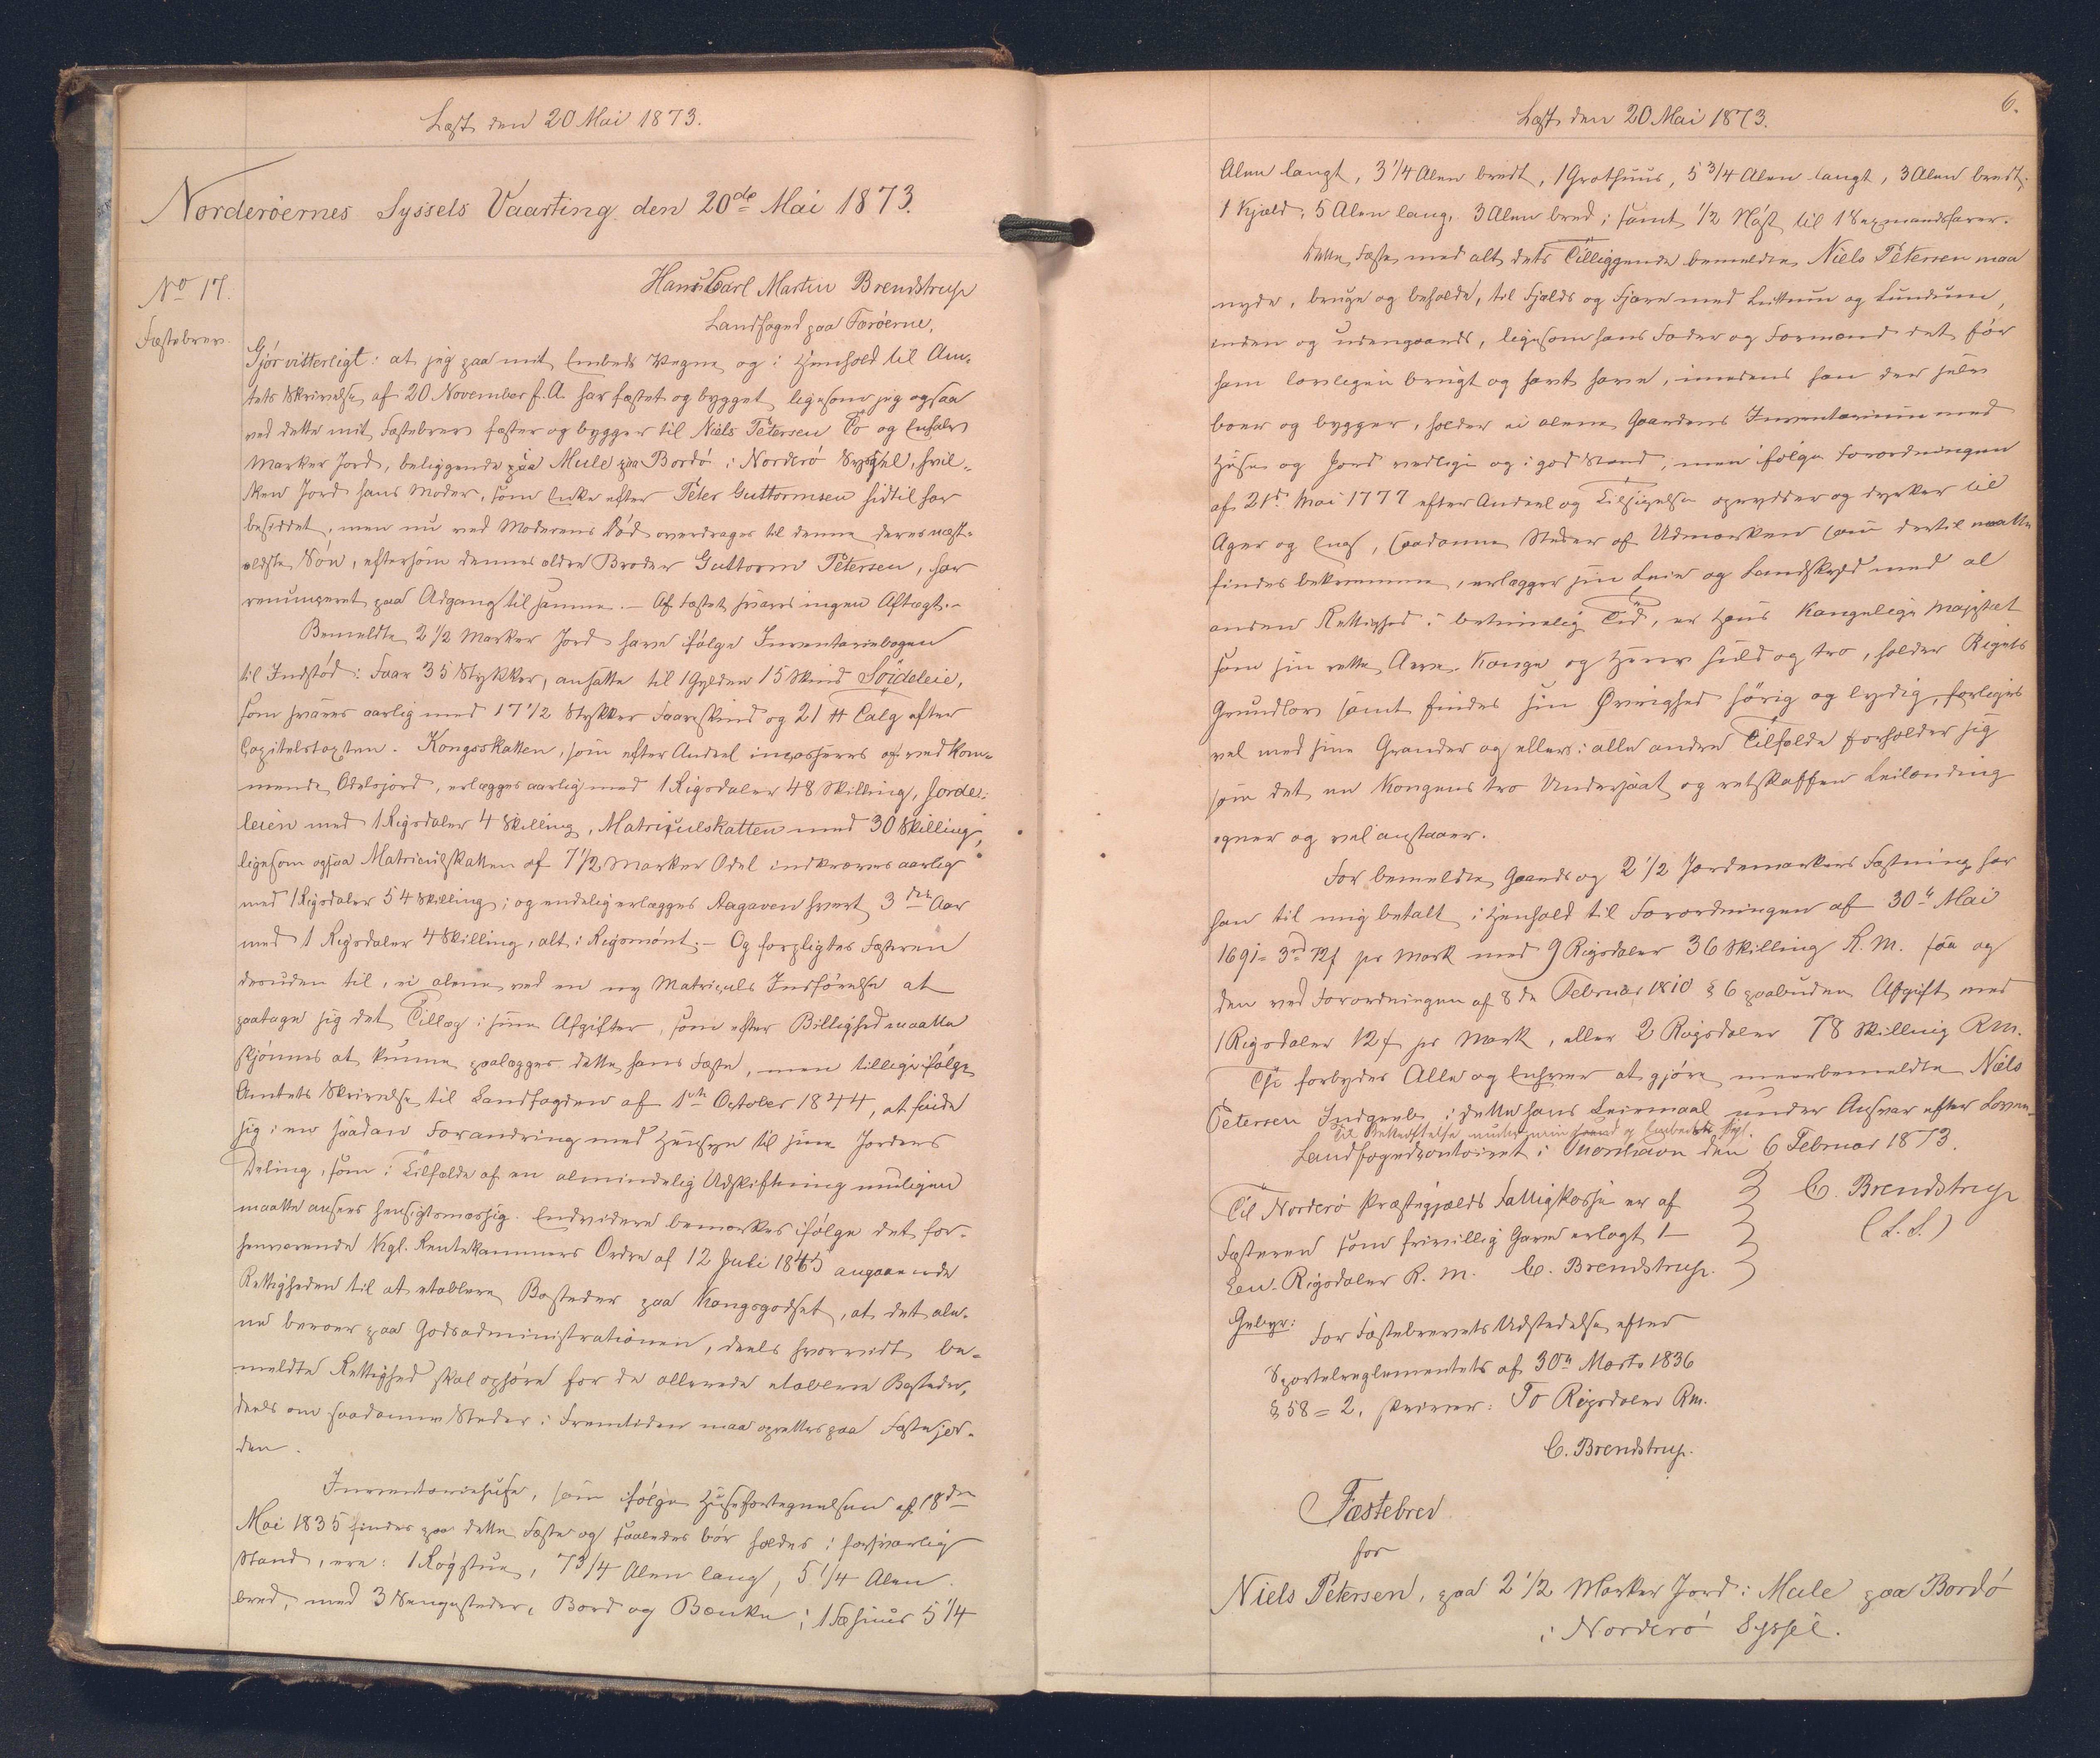 Læst den 20 Mai 1873.
Norderøernes Syssels Vaarting den 20de Mai 1873.
No 17.
Fæstebrev.
Hans Carl Martin Brendstrup
Landfoged paa Færøerne,
Gjør vitterligt: at jeg paa mit Embeds Vegne og i Henhold til Am-
tets Skrivelse af 20 November f. A. har fæstet og bygget ligesom jeg ogsaa
ved dette mit Fæstebrev fæster og bygger til Niels Petersen To og Enhalv
Marker Jord, beliggende paa Mule paa Bordø i Norderø Syssel, hvil-
ken Jord hans Moder, som Enke efter Peter Guttormsen hidtil har
besiddet, men nu ved Moderens Død overdrages til denne deres næst-
ældste Søn, eftersom dennes ældre Broder Guttorm Petersen, har
renunceret paa Adgang til samme. – Af Fæstet svares ingen Aftægt. –
Bemeldte 2 1/2 Marker Jord have ifølge Inventariebogen
til Indstød: Faar 35 Stykker, ansatte til 1 Gylden 15 Skind Søideleie,
som svares aarlig med 17 1/2 Stykker Faareskind og 21 ℔ Talg efter
Capitelstaxten. Kongsskatten, som efter Andeel incasseres af vedkom-
mende Odelsjord, erlægges aarlig med 1 Rigsdaler 48 Skilling, Jorde-
leien med 1 Rigsdaler 4 Skilling, Matriculskatten med 30 Skilling,
ligesom ogsaa Matriculskatten af 7 1/2 Marker Odel indkræves aarlig
med 1 Rigsdaler 54 Skilling; og endelig erlægges Aagaven hvert 3die Aar
med 1 Rigsdaler 4 Skilling, alt i Rigsmønt. – Og forpligtes Fæsteren
desuden til, ei alene ved en ny Matriculs Indførelse at
paatage sig det Tillæg i sine Afgifter, som efter Billighed maatte
skjønnes at kunne paalægges dette hans Fæste, men tillige ifølge
Amtets Skrivelse til Landfogden af 1ste October 1844, at finde
sig i en saadan Forandring med Hensyn til sine Jorders
Deling, som i Tilfælde af en almindelig Udskiftning muligen
maatte ansees hensigtsmæssig. Endvidere bemærkes ifølge det for-
henværende Kgl. Rentekammers Ordre af 12 Juli 1845 angaaende
Rettigheden til at etablere Bosteder paa Kongsgodset, at det ale-
ne beroer paa Godsadministrationen, deels hvorvidt be-
meldte Rettighed skal ophøre for de allerede etablerede Bosteder,
deels om saadanne Steder i Fremtiden maa oprettes paa Fæstejor-
den.
Inventariehuse, som ifølge Huusfortegnelsen af 18den
Mai 1835 findes paa dette Fæste og saaledes bør holdes i forsvarlig
Stand, ere: 1 Røgstue, 7 3/4 Alen lang, 5 1/4 Alen
bred, med 3 Sengesteder, Bord og Bænke; 1 Fæhuus 5 1/4
6.
Læst den 20 Mai 1873.
Alen langt, 3 1/4 Alen bredt, 1 Grothuus, 5 3/4 Alen langt, 3 Alen bredt;
1 Kjæld, 5 Alen lang, 3 Alen bred; samt 1/2 Nøst til 1 Sexmandsfarer.
Dette Fæste med alt dets Tilliggende bemeldte Niels Petersen maa
nyde, bruge og beholde, til Fjelds og Fjære med Luttum og Lundum,
inden og udengaards, ligesom hans Fader og Formænd det før
ham lovligen brugt og havt have, imedens han der selv
boer og bygger, holder ei alene Gaardens Inventarium med
Huse og Jord vedlige og i god Stand, men ifølge Forordningen
af 21de Mai 1777 efter Andeel og Tilsigelse oprydder og dyrker til
Ager og Eng, saadanne Steder af Udmarken som dertil maatte
findes bekvemme, erlægger sin Leie og Landskyld med al
anden Rettighed i betimelig Tid, er Hans Kongelige Majestæt
som sin rette Arve-Konge og Herre huld og tro, holder Rigets
Grundlov samt findes sin Øvrighed hørig og lydig, forliges
vel med sine Grander og ellers i alle andre Tilfælde forholder sig
som det en Kongens tro Undersaat og retskaffen Leilænding
egner og vel anstaaer.
For bemeldte Gaards og 2 1/2 Jordemarkers Fæstning har
han til mig betalt i Henhold til Forordningen af 30te Mai
1691 = 3rd 12ß pr Mark med 9 Rigsdaler 36 Skilling R. M. saa og
den ved Forordningen af 8de Februar 1810 § 6 paabudne Afgift med
1 Rigsdaler 12ß pr Mark, eller 2 Rigsdaler 78 Skilling RM.
Thi forbydes Alle og Enhver at gjøre meerbemeldte Niels
Petersen Indgreb i dette hans Leiemaal under Ansvar efter Loven.
Til Bekræftelse under min Haand og Embeds Segl.
Landfogedcontoiret i Thorshavn den 6 Februar 1873.
C. Brendstrup
(L. S.)
Til Norderø Præstegjælds Fattigkasse er af
Fæsteren som frivillig Gave erlagt 1 –
Een Rigsdaler R. M. C. Brendstrup.
Gebyr: For Fæstebrevets Udstedelse efter
Sportelreglementets af 30te Marts 1836
§ 58 = 2, skriver: To Rigsdaler Rm.
C. Brendstrup.
Fæstebrev
for
Niels Petersen, paa 2 1/2 Marker Jord i Mule paa Bordø
i Norderø Syssel.